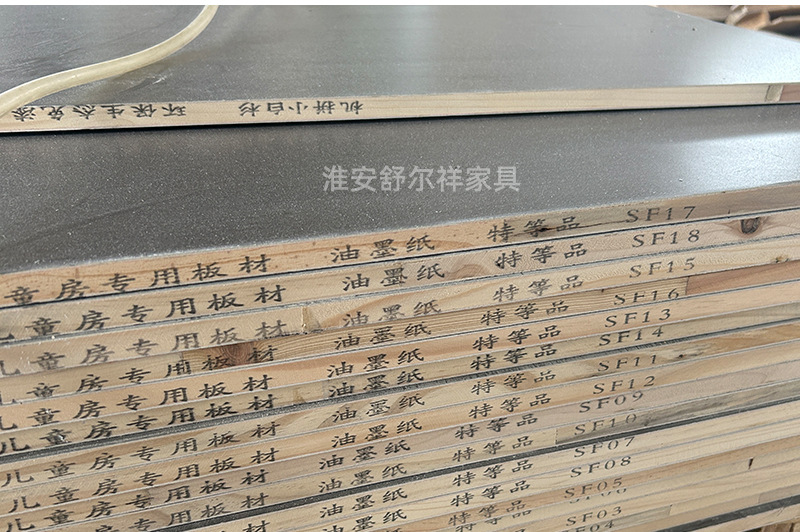 机拼小白杉 环保生态免漆
淮安舒尔祥家具
童房专用板材 油墨纸 特等品 SF17
儿童房专用板材 油墨纸 特等品 SF18
儿童房专用板材 油墨纸 特等品 SF15
儿童房专用板材 油墨纸 特等品 SF16
儿童房专用板材 油墨纸 特等品 SF13
儿童房专用板材 油墨纸 特等品 SF14
儿童房专用板材 油墨纸 特等品 SF11
儿童房专用板材 油墨纸 特等品 SF12
儿童房专用板材 油墨纸 特等品 SF09
儿童房专用板材 油墨纸 特等品 SF10
儿童房专用板材 油墨纸 特等品 SF07
油墨纸 特等品 SF08
特等品 SF05
SF03
SF04